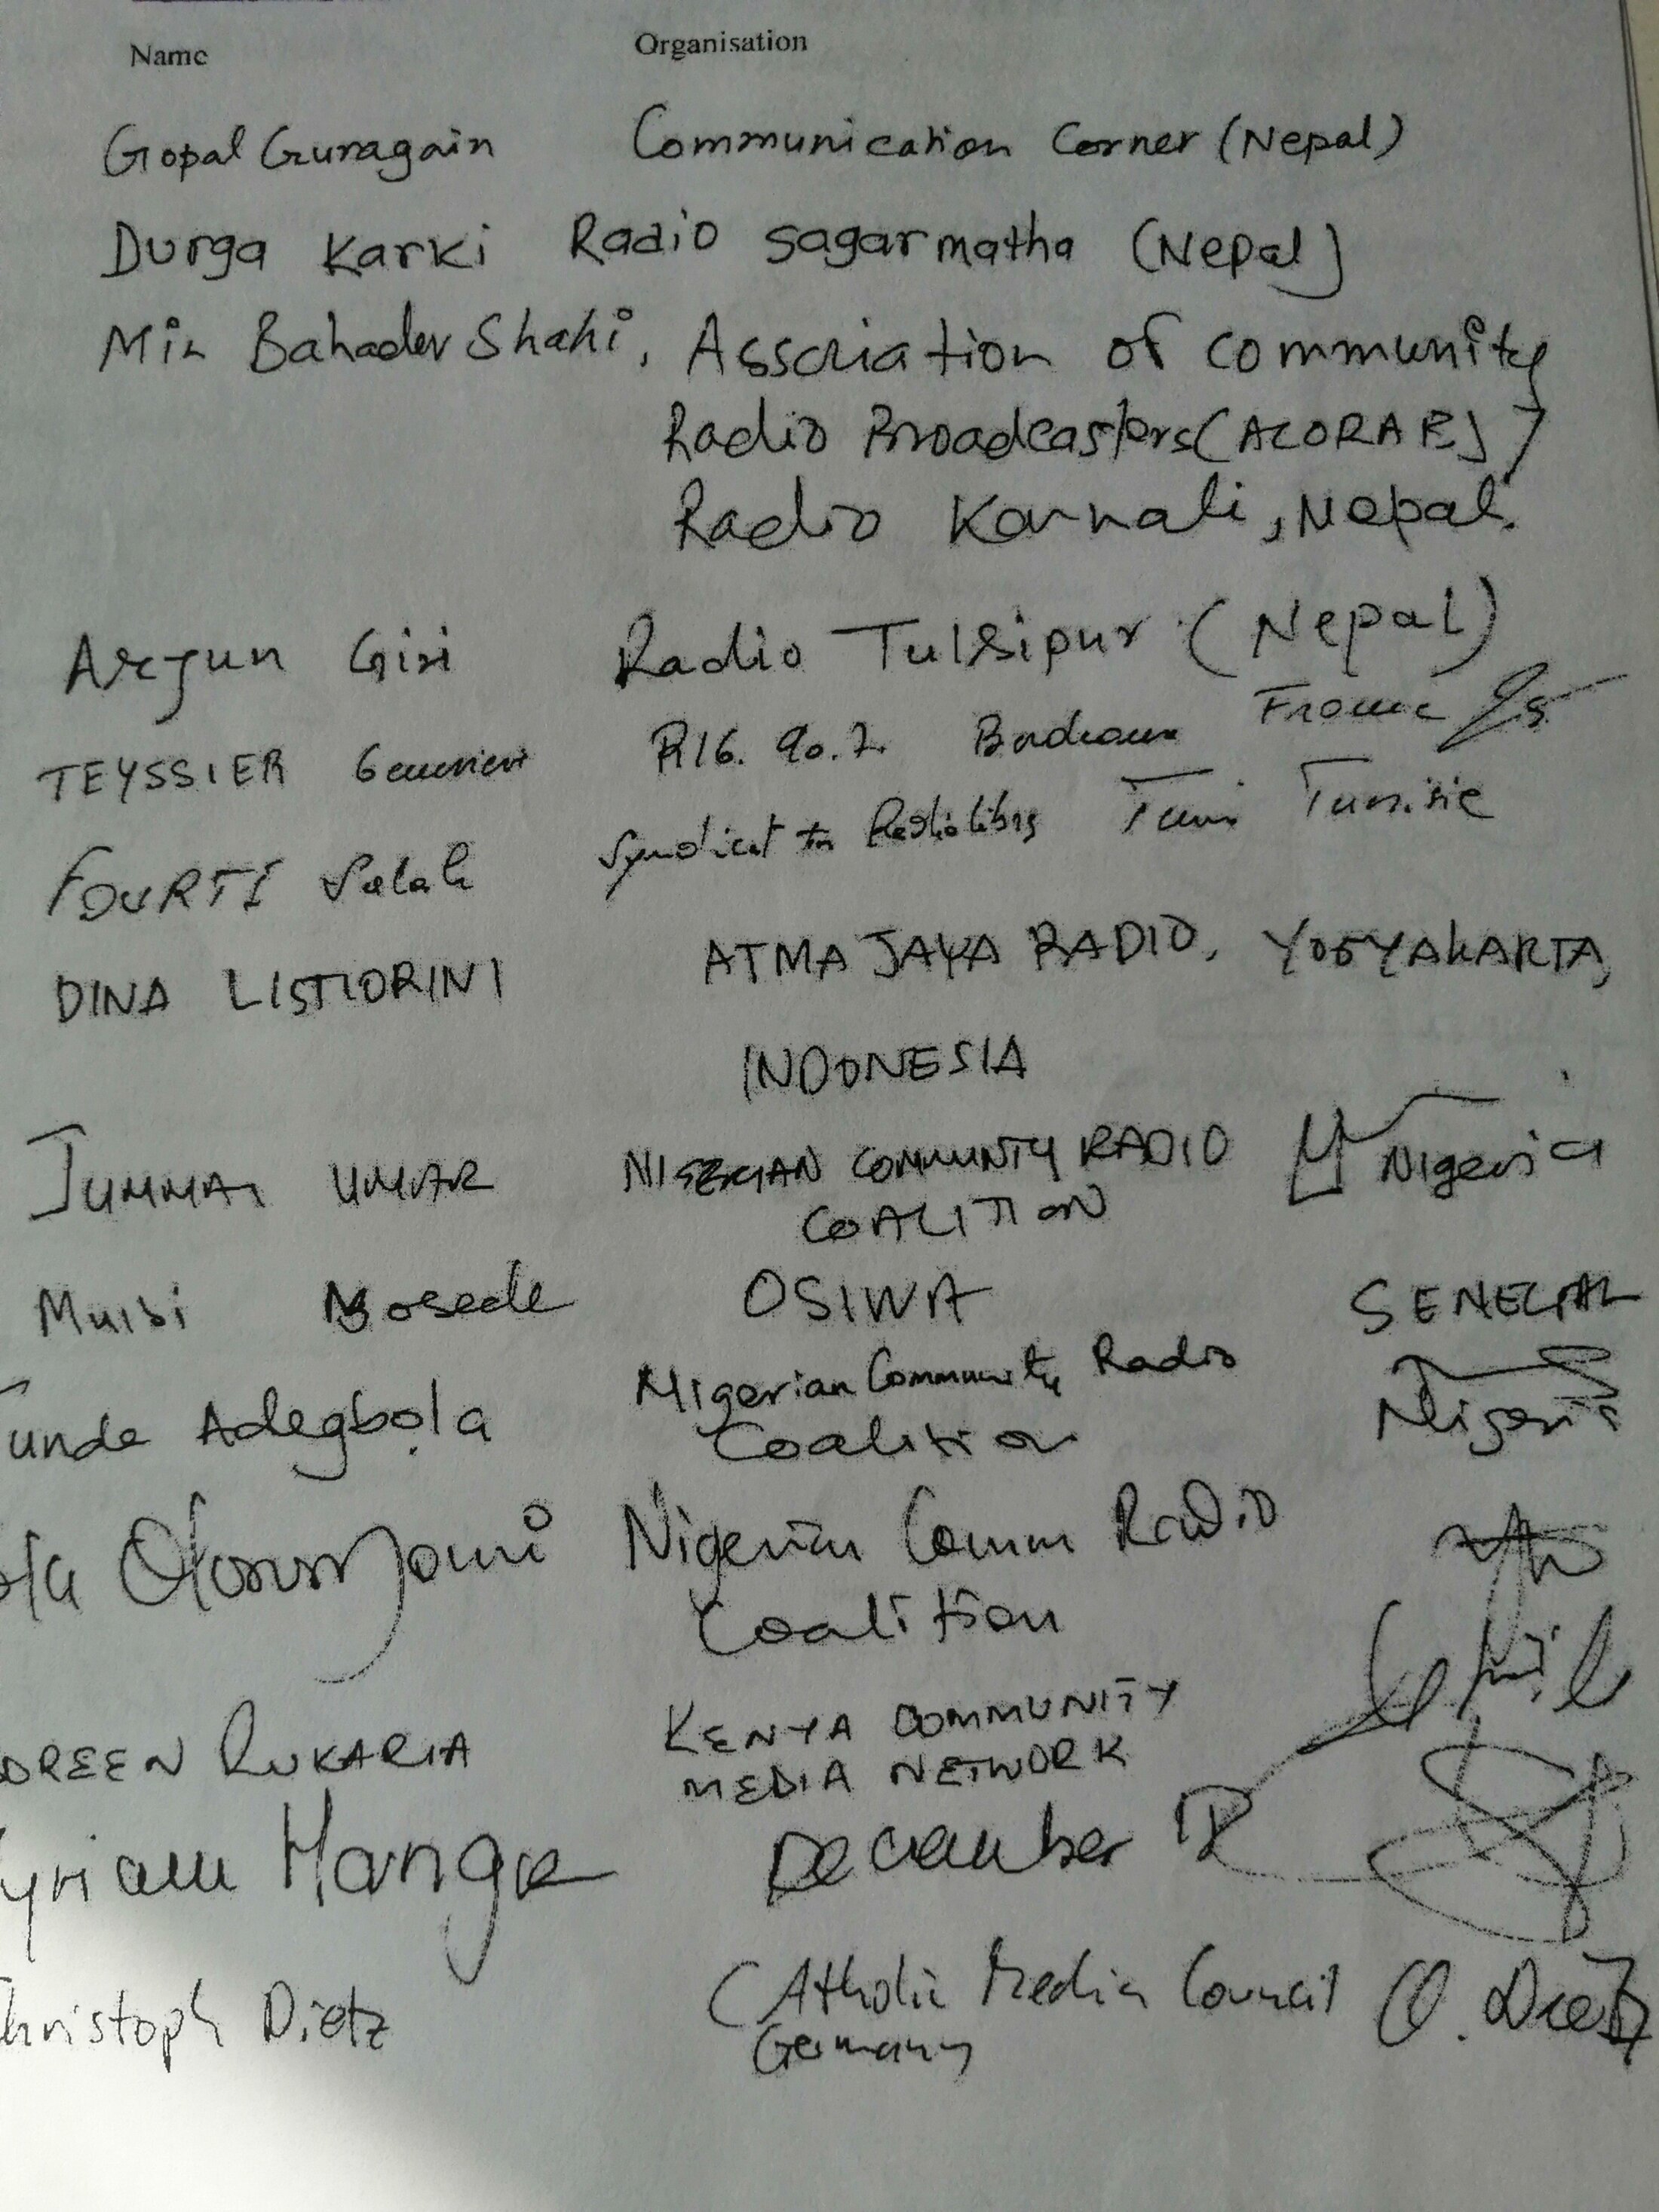 Name Organisation
Gopal Guragain Communication Corner (Nepal)
Durga Karki Radio sagarmatha (Nepal)
Min Bahadur Shahi, Association of community
Radio Broadcasters (ACORAB)
Radio Karnali, Nepal.
Arjun Giri Radio Tulsipur (Nepal)
TEYSSIER R16. 90.2. Bordeaux France
FOURTI Salah Syndicat Tunis Tunisie
DINA LISTIORINI ATMA JAYA RADIO, YOGYAKARTA,
INDONESIA
JUMMAI UMAR NIGERIAN COMMUNITY RADIO Nigeria
COALITION
Muibi Bosede OSIWA SENEGAL
unde Adegbola Nigerian Community Radio Nigeria
Coalition
Nigerian Comm Radio
Coalition
OREEN RUKARIA KENYA COMMUNITY
MEDIA NETWORK
yriam December 12
hristoph Dietz CAtholic Media Council C. Dietz
Germany